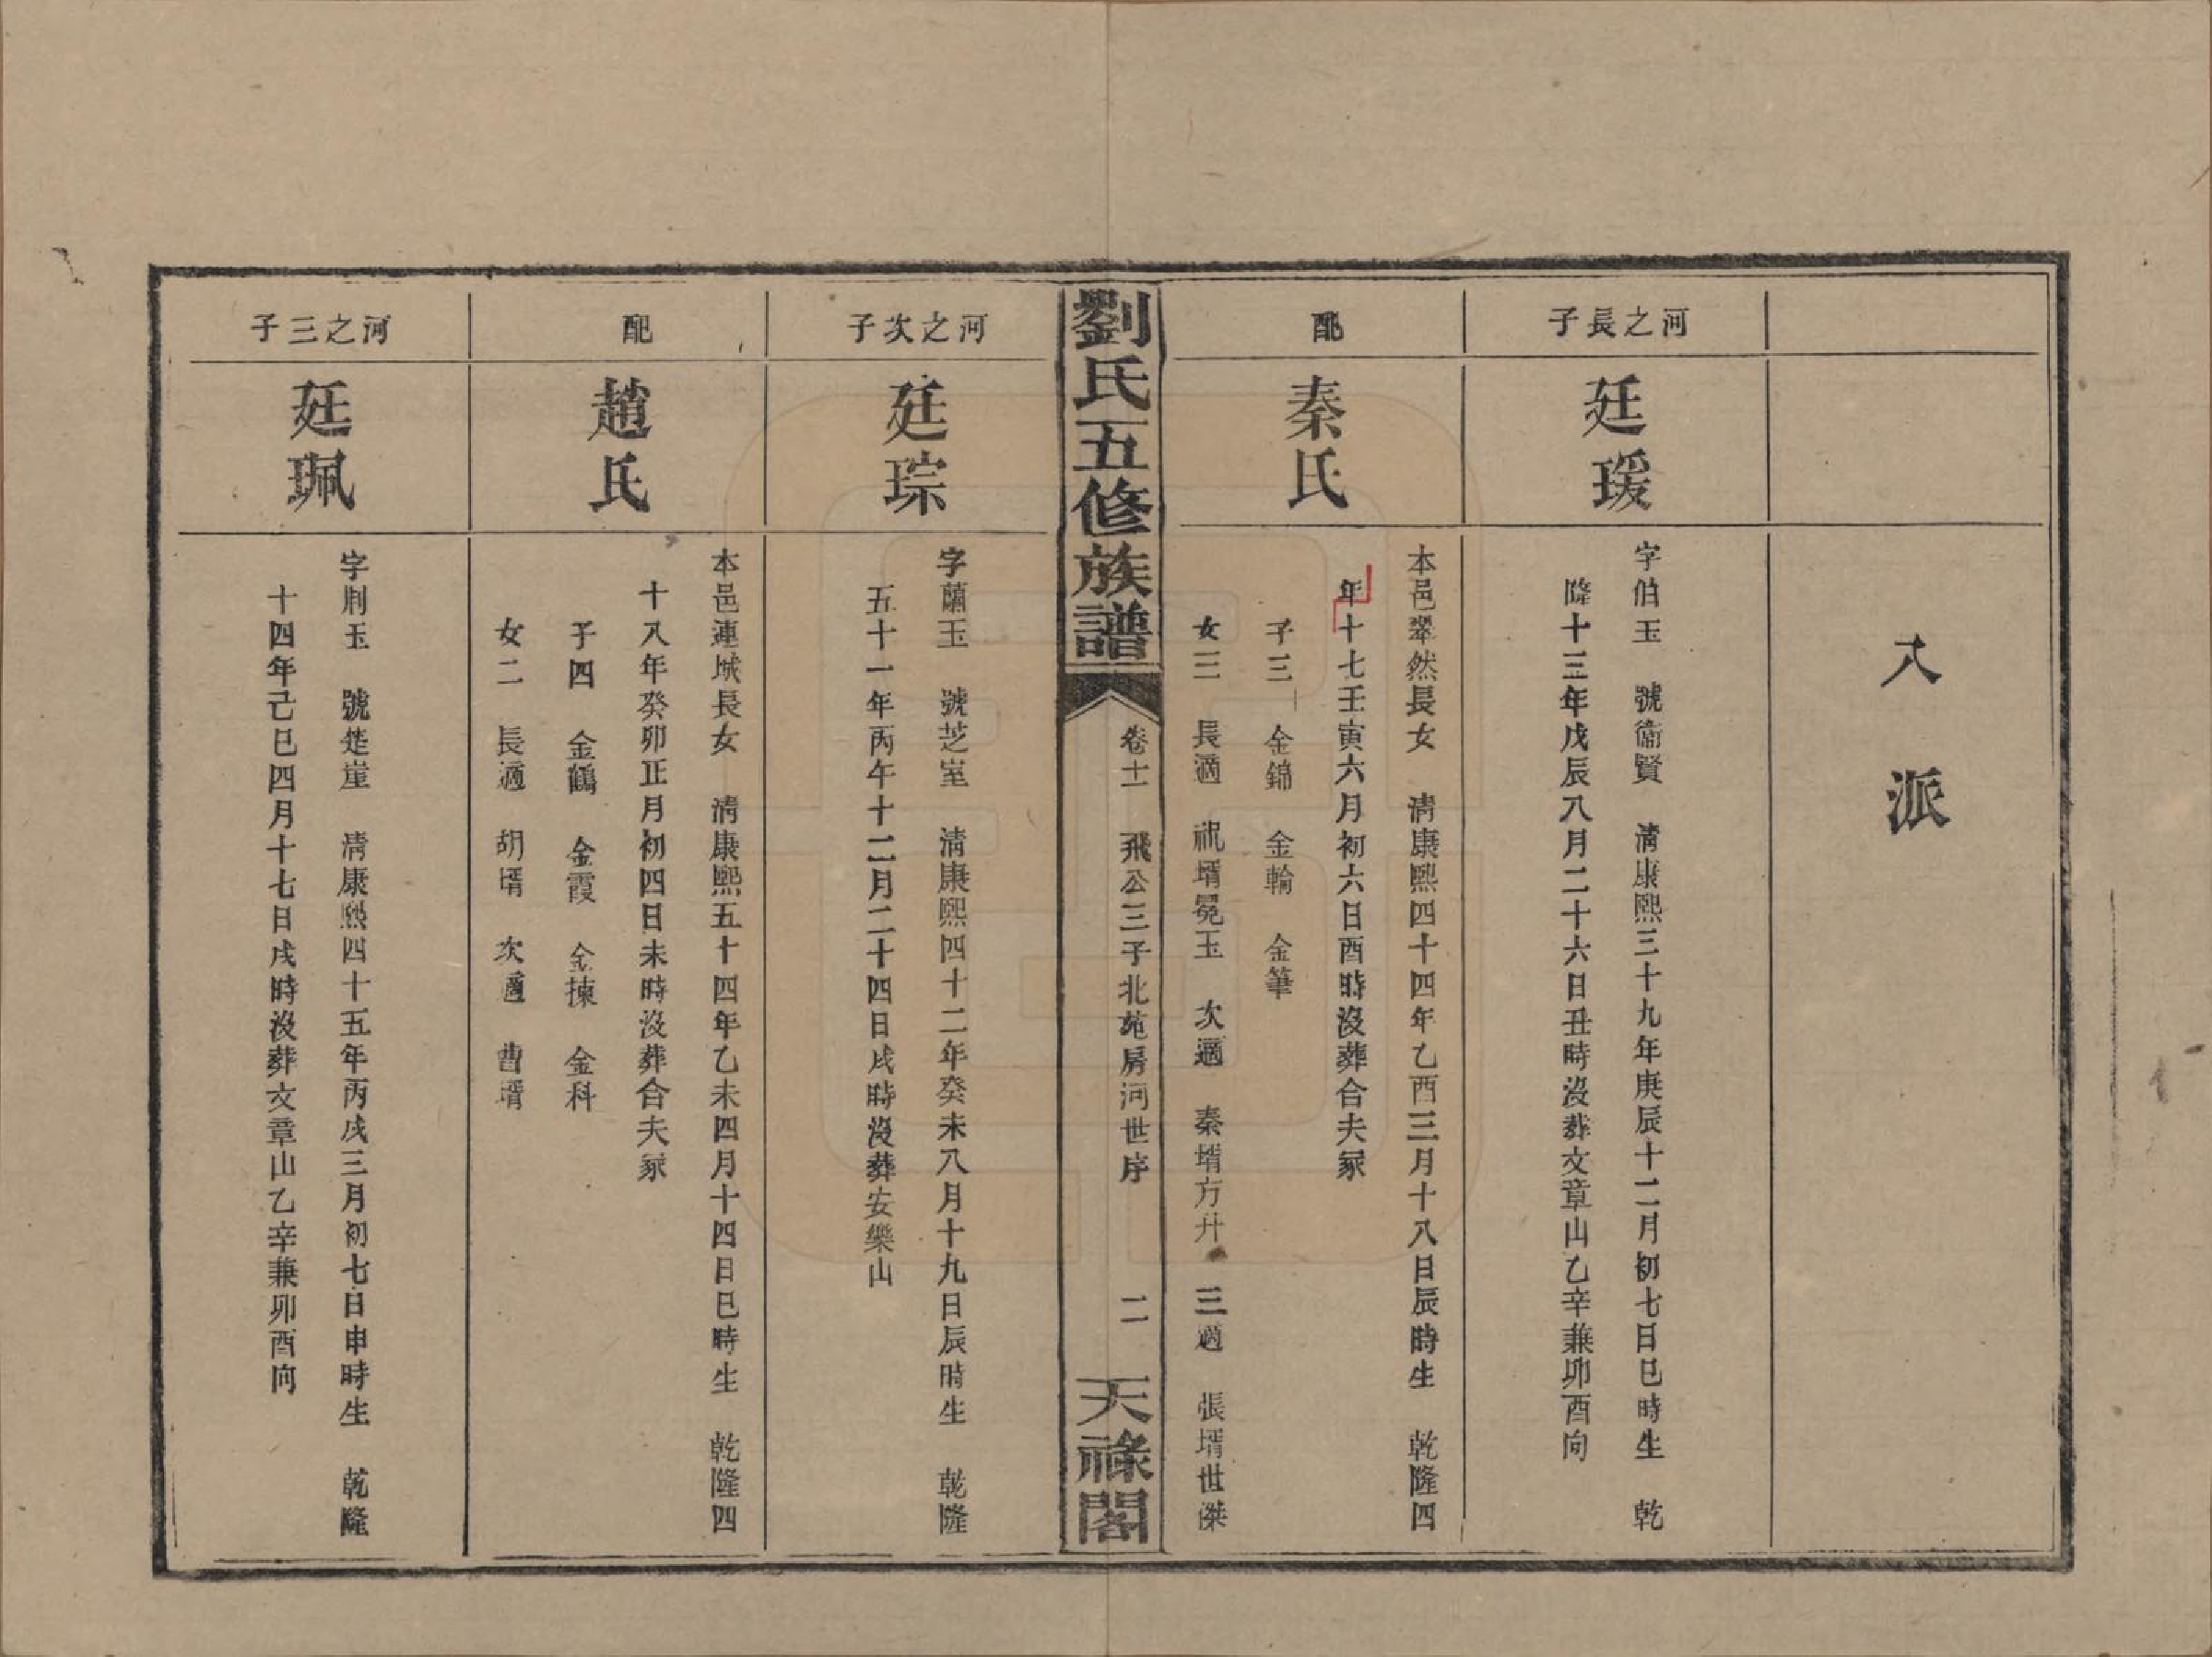 八派
河之長子
廷瑗
字伯玉　號衛賢　清康熙三十九年庚辰十二月初七日巳時生　乾
隆十三年戊辰八月二十六日丑時沒葬文章山乙辛兼卯酉向
配
秦氏
本邑翠然長女　清康熙四十四年乙酉三月十八日辰時生　乾隆四
年十七壬寅六月初六日酉時沒葬合夫冢
子三　金錦　金輪　金筆
女三　長適　祝壻冕玉　次適　秦壻方升　三適　張壻世傑
劉氏五修族譜
卷十一　飛公三子北苑房河世序　二
天祿閣
河之次子
廷琮
字蘭玉　號芝室　清康熙四十二年癸未八月十九日辰時生　乾隆
五十一年丙午十二月二十四日戌時沒葬安樂山
配
趙氏
本邑連城長女　清康熙五十四年乙未四月十四日巳時生　乾隆四
十八年癸卯正月初四日未時沒葬合夫冢
子四　金鶴　金霞　金揀　金科
女二　長適　胡壻　次適　曹壻
河之三子
廷珮
字荆玉　號楚崖　清康熙四十五年丙戌三月初七日申時生　乾隆
十四年己巳四月十七日戌時沒葬文章山乙辛兼卯酉向